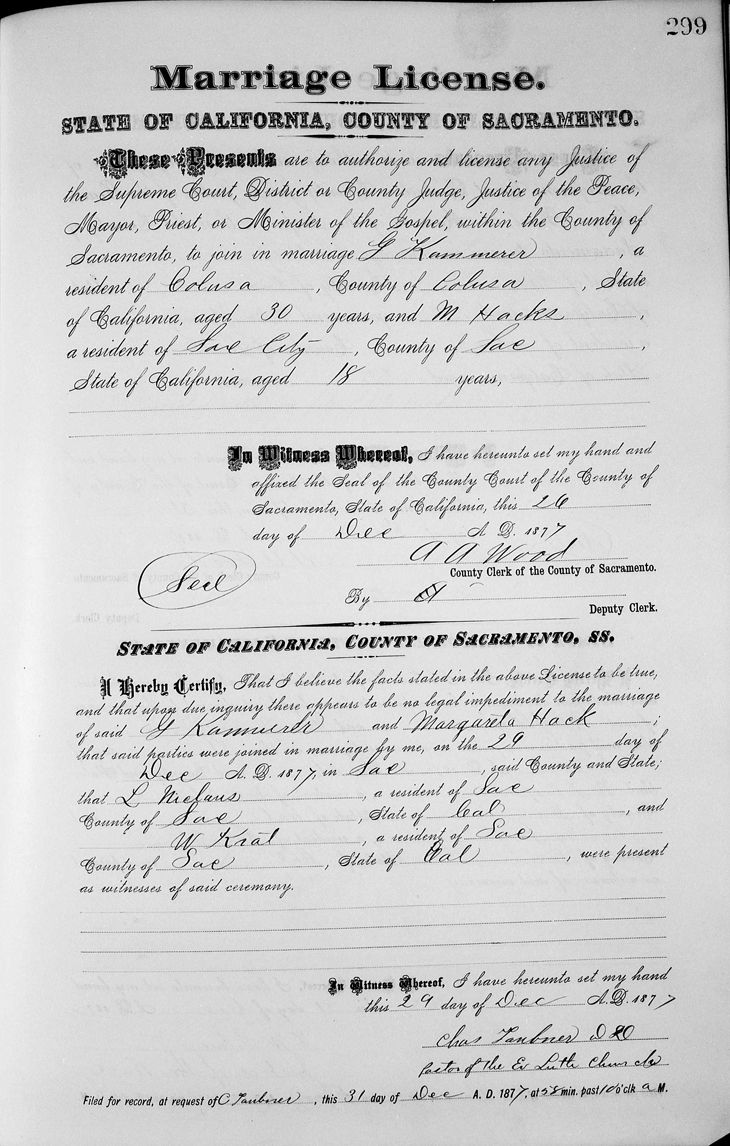 299
Marriage License.
STATE OF CALIFORNIA, COUNTY OF SACRAMENTO.
These Presents are to authorize and license any Justice of
the Supreme Court, District or County Judge, Justice of the Peace,
Mayor, Priest, or Minister of the Gospel, within the County of
Sacramento, to join in marriage G Kammerer, a
resident of Colusa, County of Colusa, State
of California, aged 30 years, and M Hacks,
a resident of Sac City, County of Sac,
State of California, aged 18 years,
In Witness Whereof, I have hereunto set my hand and
affixed the Seal of the County Court of the County of
Sacramento, State of California, this 26
day of Dec A. D. 1877
A A Wood
County Clerk of the County of Sacramento.
Seal
By
Deputy Clerk.
STATE OF CALIFORNIA, COUNTY OF SACRAMENTO, SS.
I Hereby Certify, That I believe the facts stated in the above License to be true,
and that upon due inquiry there appears to be no legal impediment to the marriage
of said G Kammerer and Margareta Hack;
that said parties were joined in marriage by me, on the 29 day of
Dec A. D. 1877, in Sac, said County and State;
that L Niefaus, a resident of Sac
County of Sac, State of Cal, and
W Krat, a resident of Sac
County of Sac, State of Cal, were present
as witnesses of said ceremony.
In Witness Whereof, I have hereunto set my hand
this 29 day of Dec A. D. 1877
Chas Taubner
Pastor of the Ev Luth Church
Filed for record, at request of C Taubner, this 31 day of Dec A. D. 1877, at 58 min. past 10 o'clk a M.